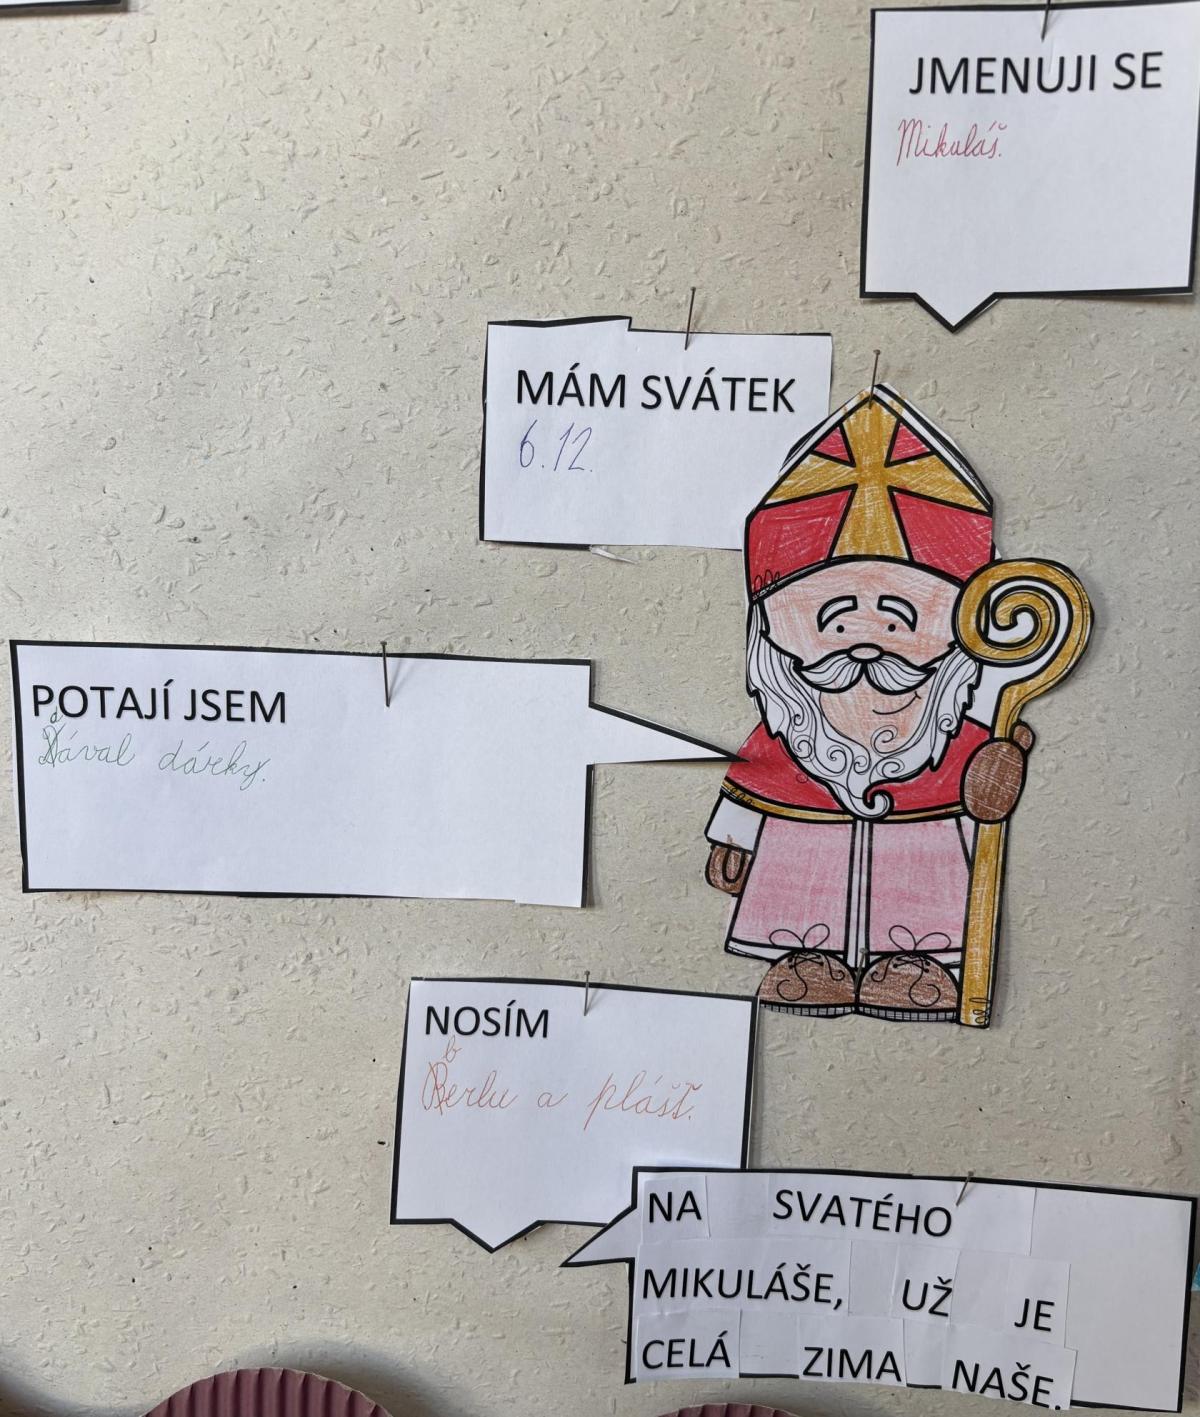 JMENUJI SE
Mikuláš.
MÁM SVÁTEK
6.12.
POTAJÍ JSEM
dával dárky.
NOSÍM
berlu a plášť.
NA SVATÉHO
MIKULÁŠE, UŽ JE
CELÁ ZIMA NAŠE.